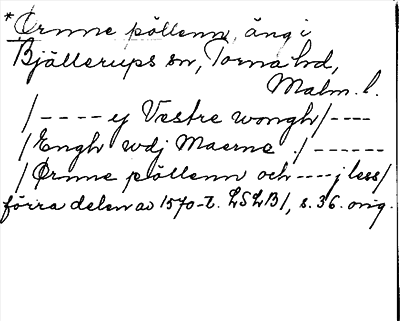 *Ørnne pöllenn, äng i
Bjällerups sn, Torna hd,
Malm. l.
/---- ej Vestre wongh/----
/Engh wdj Maerne :/------
/Ørnne pöllenn och ----j less/
förra delen av 1570-t. LSLB1, s. 36. orig.